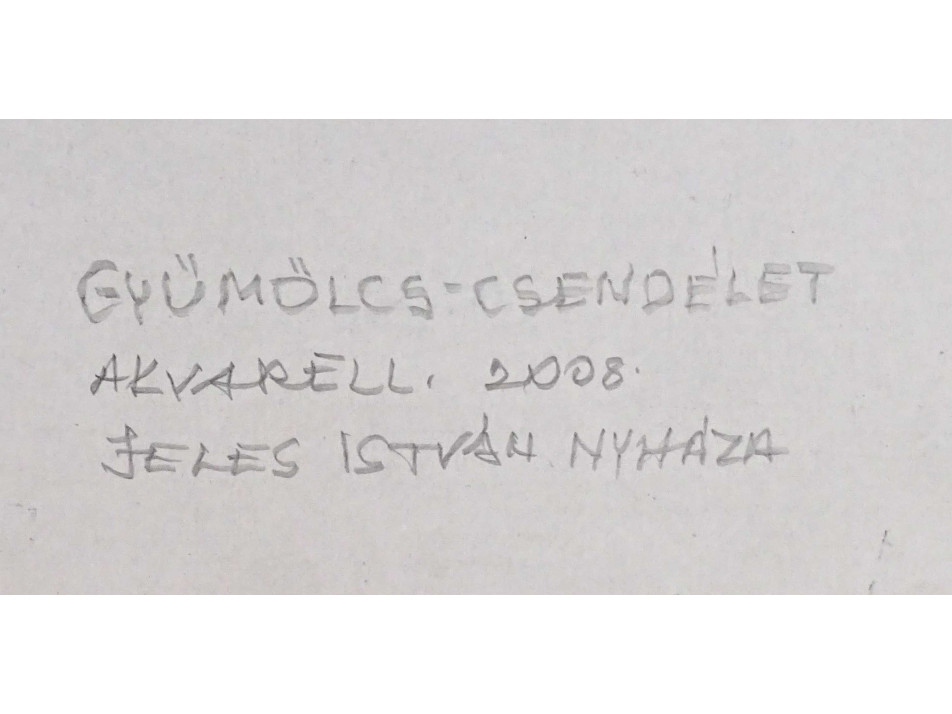 GYÜMÖLCS-CSENDÉLET
AKVARELL. 2008.
JELES ISTVÁN NYHÁZA